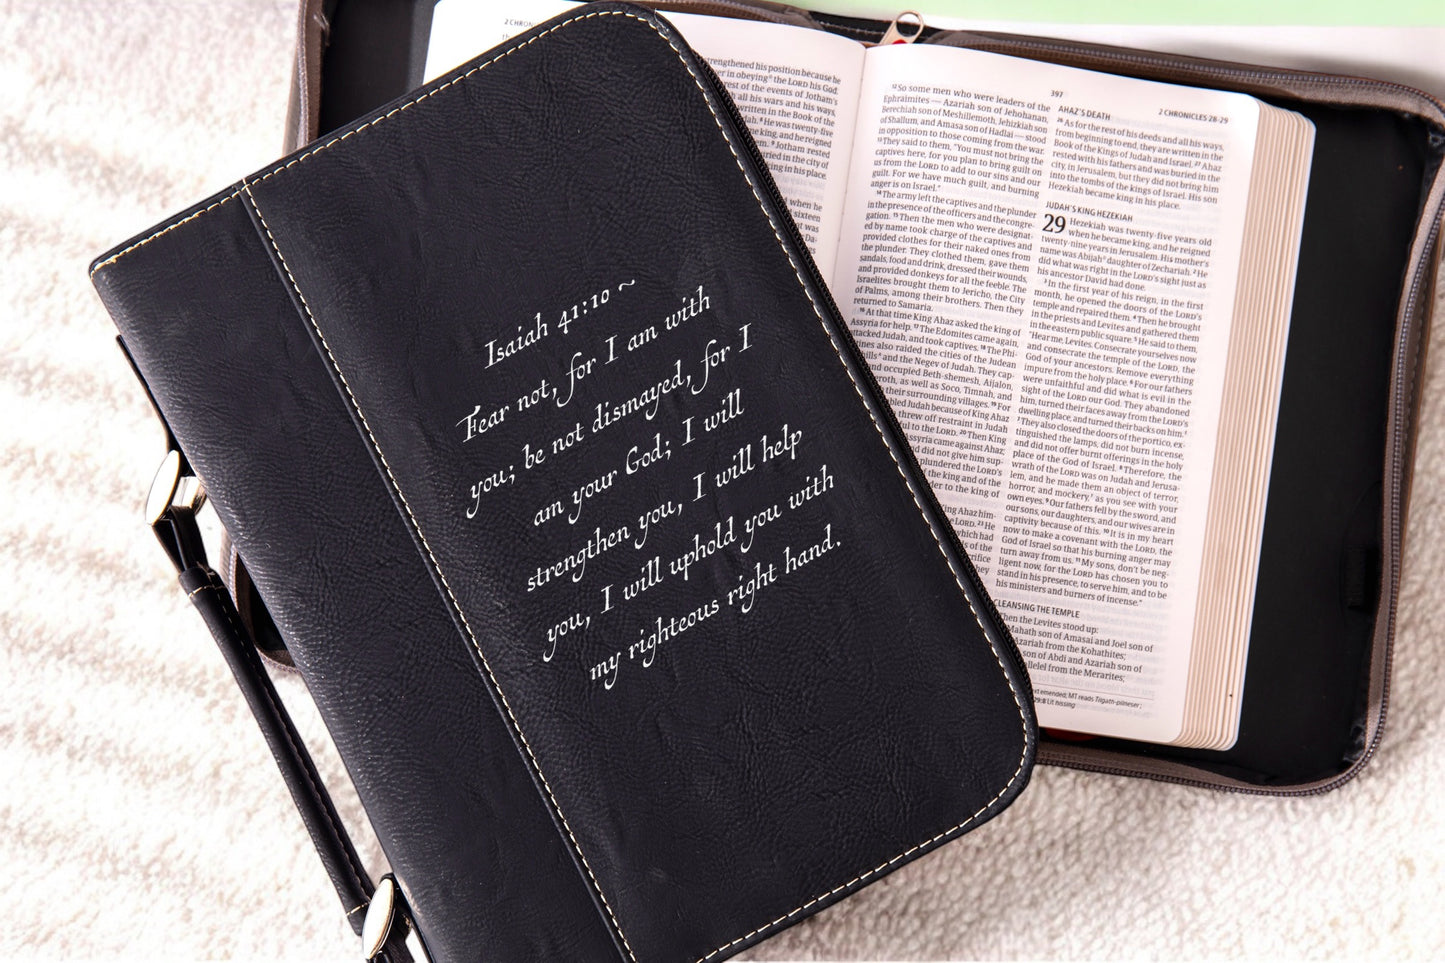 Isaiah 41:10 ~
Fear not, for I am with
you; be not dismayed, for I
am your God; I will
strengthen you, I will help
you, I will uphold you with
my righteous right hand.
2 CHRON
rengthened his position because he
er in obeying the LORD his God.
rest of the events of Jotham's
h all his wars and his ways,
written in the Book of the
dah. ⁸He was twenty-five
he king, and he reigned
m. ⁹Jotham rested
uried in the city of
king in his place.
when he
sixteen
t was
397
2 CHRONICLES 28-29
¹²So some men who were leaders of the
Ephraimites — Azariah son of Jehohanan,
Berechiah son of Meshillemoth, Jehizkiah son
of Shallum, and Amasa son of Hadlai — stood
in opposition to those coming from the war.
¹³They said to them, "You must not bring the
captives here, for you plan to bring guilt on
us from the LORD to add to our sins and our
guilt. For we have much guilt, and burning
anger is on Israel."
¹⁴The army left the captives and the plunder
in the presence of the officers and the congre-
gation. ¹⁵Then the men who were designat-
ed by name took charge of the captives and
provided clothes for their naked ones from
the plunder. They clothed them, gave them
sandals, food and drink, dressed their wounds,
and provided donkeys for all the feeble. The
Israelites brought them to Jericho, the City
of Palms, among their brothers. Then they
returned to Samaria.
¹⁶At that time King Ahaz asked the king of
Assyria for help. ¹⁷The Edomites came again,
attacked Judah, and took captives. ¹⁸The Phi-
nes also raided the cities of the Judean
hills and the Negev of Judah. They cap-
nd occupied Beth-shemesh, Aijalon,
roth, as well as Soco, Timnah, and
their surrounding villages. ¹⁹For
bled Judah because of King Ahaz
threw off restraint in Judah
ul to the LORD. ²⁰Then King
Assyria came against Ahaz;
did not give him sup-
plundered the LORD's
of the king and of the
der to the king of
ng Ahaz him-
LORD. ²³He
which had
s of the
crifice
they
AHAZ'S DEATH
²⁶As for the rest of his deeds and all his ways,
from beginning to end, they are written in the
Book of the Kings of Judah and Israel. ²⁷Ahaz
rested with his fathers and was buried in the
city, in Jerusalem, but they did not bring him
into the tombs of the kings of Israel. His son
Hezekiah became king in his place.
JUDAH'S KING HEZEKIAH
29 Hezekiah was twenty-five years old
when he became king, and he reigned
twenty-nine years in Jerusalem. His mother's
name was Abijah daughter of Zechariah. ²He
did what was right in the LORD's sight just as
his ancestor David had done.
³In the first year of his reign, in the first
month, he opened the doors of the LORD's
temple and repaired them. ⁴Then he brought
in the priests and Levites and gathered them
in the eastern public square. ⁵He said to them,
"Hear me, Levites. Consecrate yourselves now
and consecrate the temple of the LORD, the
God of your ancestors. Remove everything
impure from the holy place. ⁶For our fathers
were unfaithful and did what is evil in the
sight of the LORD our God. They abandoned
him, turned their faces away from the LORD's
dwelling place, and turned their backs on him.
⁷They also closed the doors of the portico, ex-
tinguished the lamps, did not burn incense,
and did not offer burnt offerings in the holy
place of the God of Israel. ⁸Therefore, the
wrath of the LORD was on Judah and Jerusa-
lem, and he made them an object of terror,
horror, and mockery, as you see with your
own eyes. ⁹Our fathers fell by the sword, and
our sons, our daughters, and our wives are in
captivity because of this. ¹⁰It is in my heart
now to make a covenant with the LORD, the
God of Israel so that his burning anger may
turn away from us. ¹¹My sons, don't be neg-
ligent now, for the LORD has chosen you to
stand in his presence, to serve him, and to be
his ministers and burners of incense."
CLEANSING THE TEMPLE
Then the Levites stood up:
Mahath son of Amasai and Joel son of
Azariah from the Kohathites;
son of Abdi and Azariah son of
allelel from the Merarites;
xt emended; MT reads Tilgath-pilneser;
29:8 Lit hissing